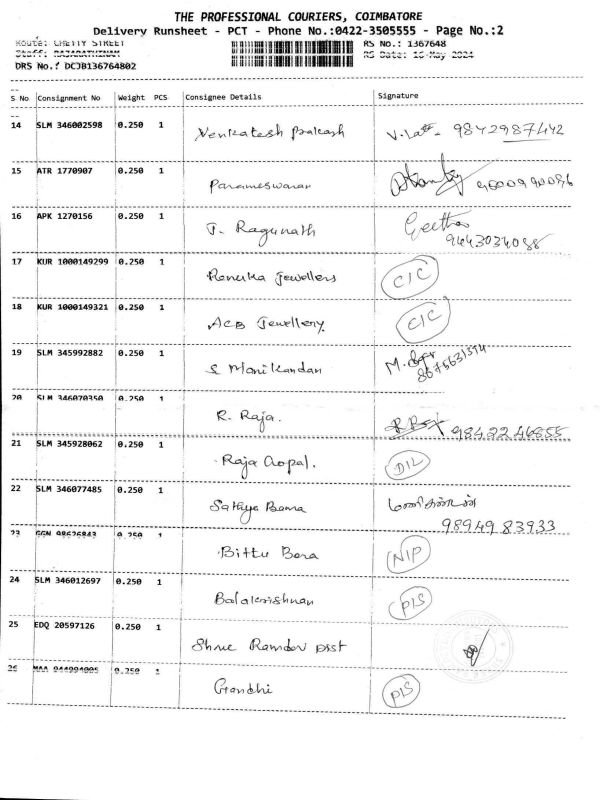 THE PROFESSIONAL COURIERS, COIMBATORE
Delivery Runsheet - PCT - Phone No.:0422-3505555 - Page No.:2
Route: CHETTY STREET RS No.: 1367648
Staff: RAJARATHINAM RS Date: 16-May 2024
DRS No.: DCJB136764802
S No Consignment No Weight PCS Consignee Details Signature
14 SLM 346002598 0.250 1 Venkatesh Prakash 9842987442
15 ATR 1770907 0.250 1 Parameswaran
16 APK 1270156 0.250 1 T. Ragunath Geetha
9443034088
17 KUR 1000149299 0.250 1 Renuka Jewellers CIC
18 KUR 1000149321 0.250 1 ACB Jewellery CIC
19 SLM 345992882 0.250 1 S Manikandan M.
8675631394
20 SLM 346070350 0.250 1 R. Raja. 9842246855
21 SLM 345928062 0.250 1 Raja Gopal. DIL
22 SLM 346077485 0.250 1 Sathya Bama மணிகண்டன்
98949 83933
23 GGN 98626843 0.250 1 Bittu Bora NIP
24 SLM 346012697 0.250 1 Balakrishnan PIS
25 EDQ 20597126 0.250 1 Shree Ramdev
26 MAA 944994005 0.250 1 Gandhi PIS